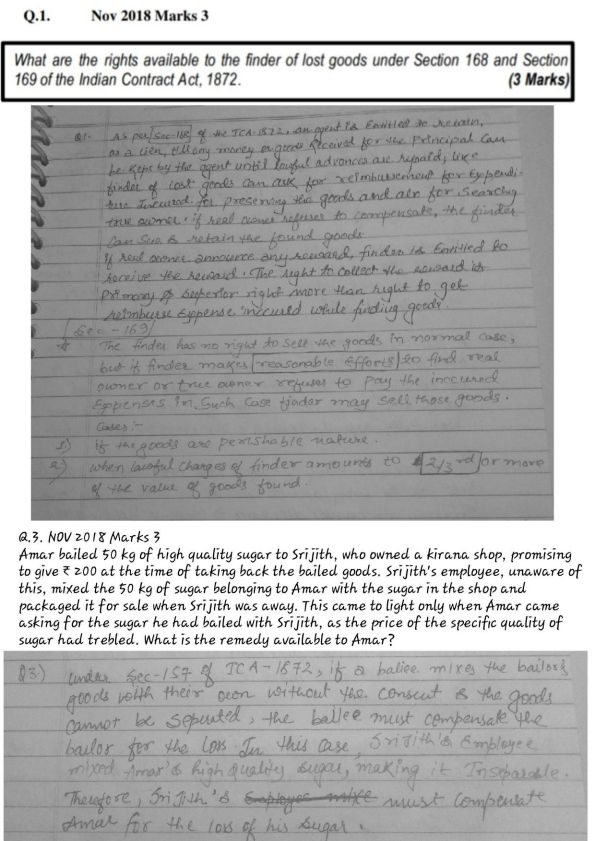 Q.1. Nov 2018 Marks 3
What are the rights available to the finder of lost goods under Section 168 and Section
169 of the Indian Contract Act, 1872. (3 Marks)
Q1- As per Sec-168 of the ICA-1872, an agent is Entitled to retain,
as a lien, till any money or goods Received for the Principal Can
be kept by the agent until lawful advances are repaid, like
finder of lost goods Can ask for reimbursement for Expendi-
ture Incurred for preserving the goods and also for Searching
true owner. if real owner refuses to compensate, the finder
Can Sue & retain the found goods.
If real owner announce any reward, finder is Entitled to
receive the reward. The right to collect the reward is
primary & superior right more than right to get
reimburse Expense inccured while finding goods.
Sec - 169/
The finder has no right to Sell the goods in normal Case,
but if finder makes reasonable Efforts to find real
owner or true owner refuses to pay the inccured
Expenses in Such Case finder may sell those goods.
Cases:-
1) if the goods are perishable nature.
2) when lawful charges of finder amounts to 2/3 rd or more
of the value of goods found.
Q.3. NOV 2018 Marks 3
Amar bailed 50 kg of high quality sugar to Srijith, who owned a kirana shop, promising
to give ₹ 200 at the time of taking back the bailed goods. Srijith's employee, unaware of
this, mixed the 50 kg of sugar belonging to Amar with the sugar in the shop and
packaged it for sale when Srijith was away. This came to light only when Amar came
asking for the sugar he had bailed with Srijith, as the price of the specific quality of
sugar had trebled. What is the remedy available to Amar?
Q3) Under Sec-157 of ICA-1872, if a bailee mixes the bailor's
goods with their own without the consent & the goods
Cannot be Seperated, the bailee must compensate the
bailor for the loss. In this case, Srijith's Employee
mixed Amar's high quality Sugar, making it Inseparable.
Therefore, Srijith's must Compensate
Amar for the loss of his Sugar.